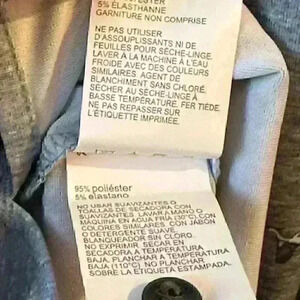 5% ÉLASTHANNE
GARNITURE NON COMPRISE
NE PAS UTILISER
D'ASSOUPLISSANTS NI DE
FEUILLES POUR SÈCHE-LINGE.
LAVER À LA MACHINE À L'EAU
FROIDE AVEC DES COULEURS
SIMILAIRES. AGENT DE
BLANCHIMENT SANS CHLORÉ.
SÉCHER AU SÈCHE-LINGE À
BASSE TEMPÉRATURE. FER TIÈDE.
NE PAS REPASSER SUR
L'ÉTIQUETTE IMPRIMÉE.
95% poliéster
5% elastano
NO USAR SUAVIZANTES O
TOALLAS DE SECADORA CON
SUAVIZANTES. LAVAR A MANO O
MÁQUINA EN AGUA FRÍA (30°C) CON
COLORES SIMILARES, CON JABÓN
O DETERGENTE SUAVE.
BLANQUEADOR SIN CLORO.
NO EXPRIMIR. SECAR EN
SECADORA A TEMPERATURA
BAJA. PLANCHAR A TEMPERATURA
BAJA (110°C) NO PLANCHAR
SOBRE LA ETIQUETA ESTAMPADA.